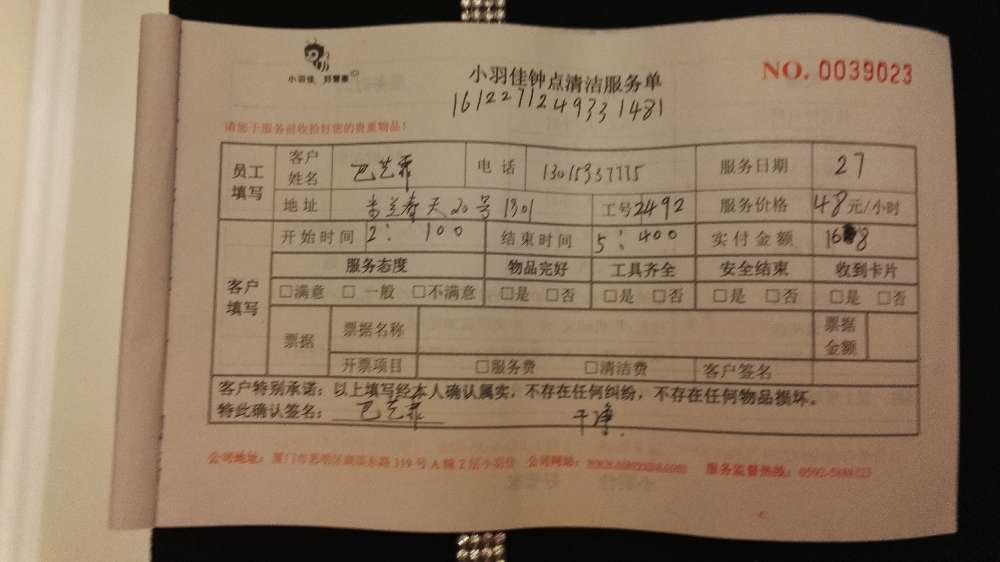 小羽佳 好管家
小羽佳钟点清洁服务单
NO. 0039023
1612271249331481
请您于服务前收拾好您的贵重物品!
员工填写 客户姓名 巴艺霏 电话 服务日期 27
地址 20号1301 工号2492 服务价格 48元/小时
客户填写 开始时间 2:100 结束时间 5:400 实付金额
服务态度 物品完好 工具齐全 安全结束 收到卡片
□满意 □一般 □不满意 □是 □否 □是 □否 □是 □否 □是 □否
票据 票据名称 票据金额
开票项目 □服务费 □清洁费 客户签名
客户特别承诺:以上填写经本人确认属实,不存在任何纠纷,不存在任何物品损坏。
特此确认签名: 巴艺霏 干净.
公司地址: 厦门市思明区 东路319号A幢2层小羽佳 公司网站: 服务监督热线: